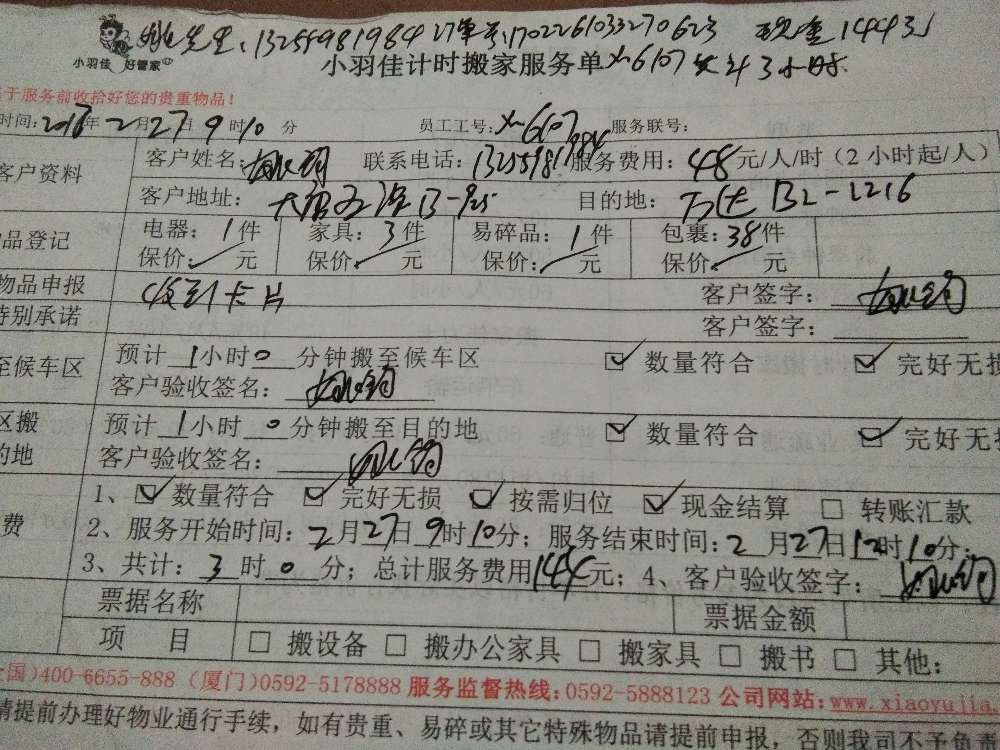 先生:13255981984 订单号:1702261033270623 现金144元
小羽佳 好管家
小羽佳计时搬家服务单 xm6107 3小时.
于服务前收拾好您的贵重物品!
时间:2017年2月27日9时10分 员工工号:xm6107 服务联号:
客户资料 客户姓名: 联系电话:13255981984 服务费用:48元/人/时(2小时起/人)
客户地址: 目的地:万达B2-1216
品登记 电器:1件 家具:3件 易碎品:1件 包裹:38件
保价: 元 保价: 元 保价: 元 保价: 元
物品申报 收到卡片 客户签字:
特别承诺 客户签字:
至候车区 预计1小时0分钟搬至候车区 ☑数量符合 ☑完好无损
客户验收签名:
区搬 预计1小时0分钟搬至目的地 ☑数量符合 ☑完好无损
的地 客户验收签名:
1、☑数量符合 ☑完好无损 ☑按需归位 ☑现金结算 □转账汇款
费 2、服务开始时间:2月27日9时10分;服务结束时间:2月27日12时10分;
3、共计:3时0分;总计服务费用144元;4、客户验收签字:
票据名称 票据金额
项目 □搬设备 □搬办公家具 □搬家具 □搬书 □其他:
全国)400-6655-888 (厦门)0592-5178888 服务监督热线:0592-5888123 公司网站:www.xiaoyujia.
请提前办理好物业通行手续,如有贵重、易碎或其它特殊物品请提前申报,否则我司不予负责